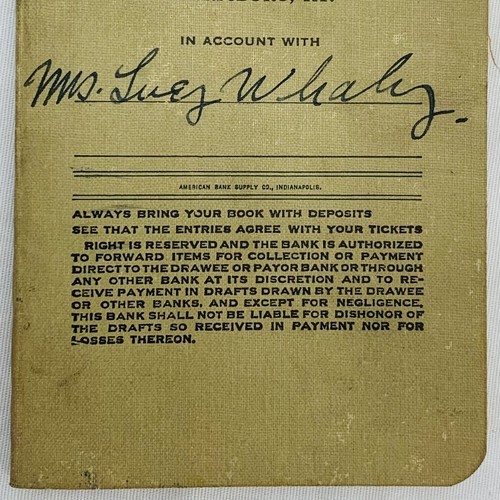 IN ACCOUNT WITH
Mrs. Lucy Whaley.
AMERICAN BANK SUPPLY CO., INDIANAPOLIS.
ALWAYS BRING YOUR BOOK WITH DEPOSITS
SEE THAT THE ENTRIES AGREE WITH YOUR TICKETS
RIGHT IS RESERVED AND THE BANK IS AUTHORIZED
TO FORWARD ITEMS FOR COLLECTION OR PAYMENT
DIRECT TO THE DRAWEE OR PAYOR BANK OR THROUGH
ANY OTHER BANK AT ITS DISCRETION AND TO RE-
CEIVE PAYMENT IN DRAFTS DRAWN BY THE DRAWEE
OR OTHER BANKS, AND EXCEPT FOR NEGLIGENCE,
THIS BANK SHALL NOT BE LIABLE FOR DISHONOR OF
THE DRAFTS SO RECEIVED IN PAYMENT NOR FOR
LOSSES THEREON.